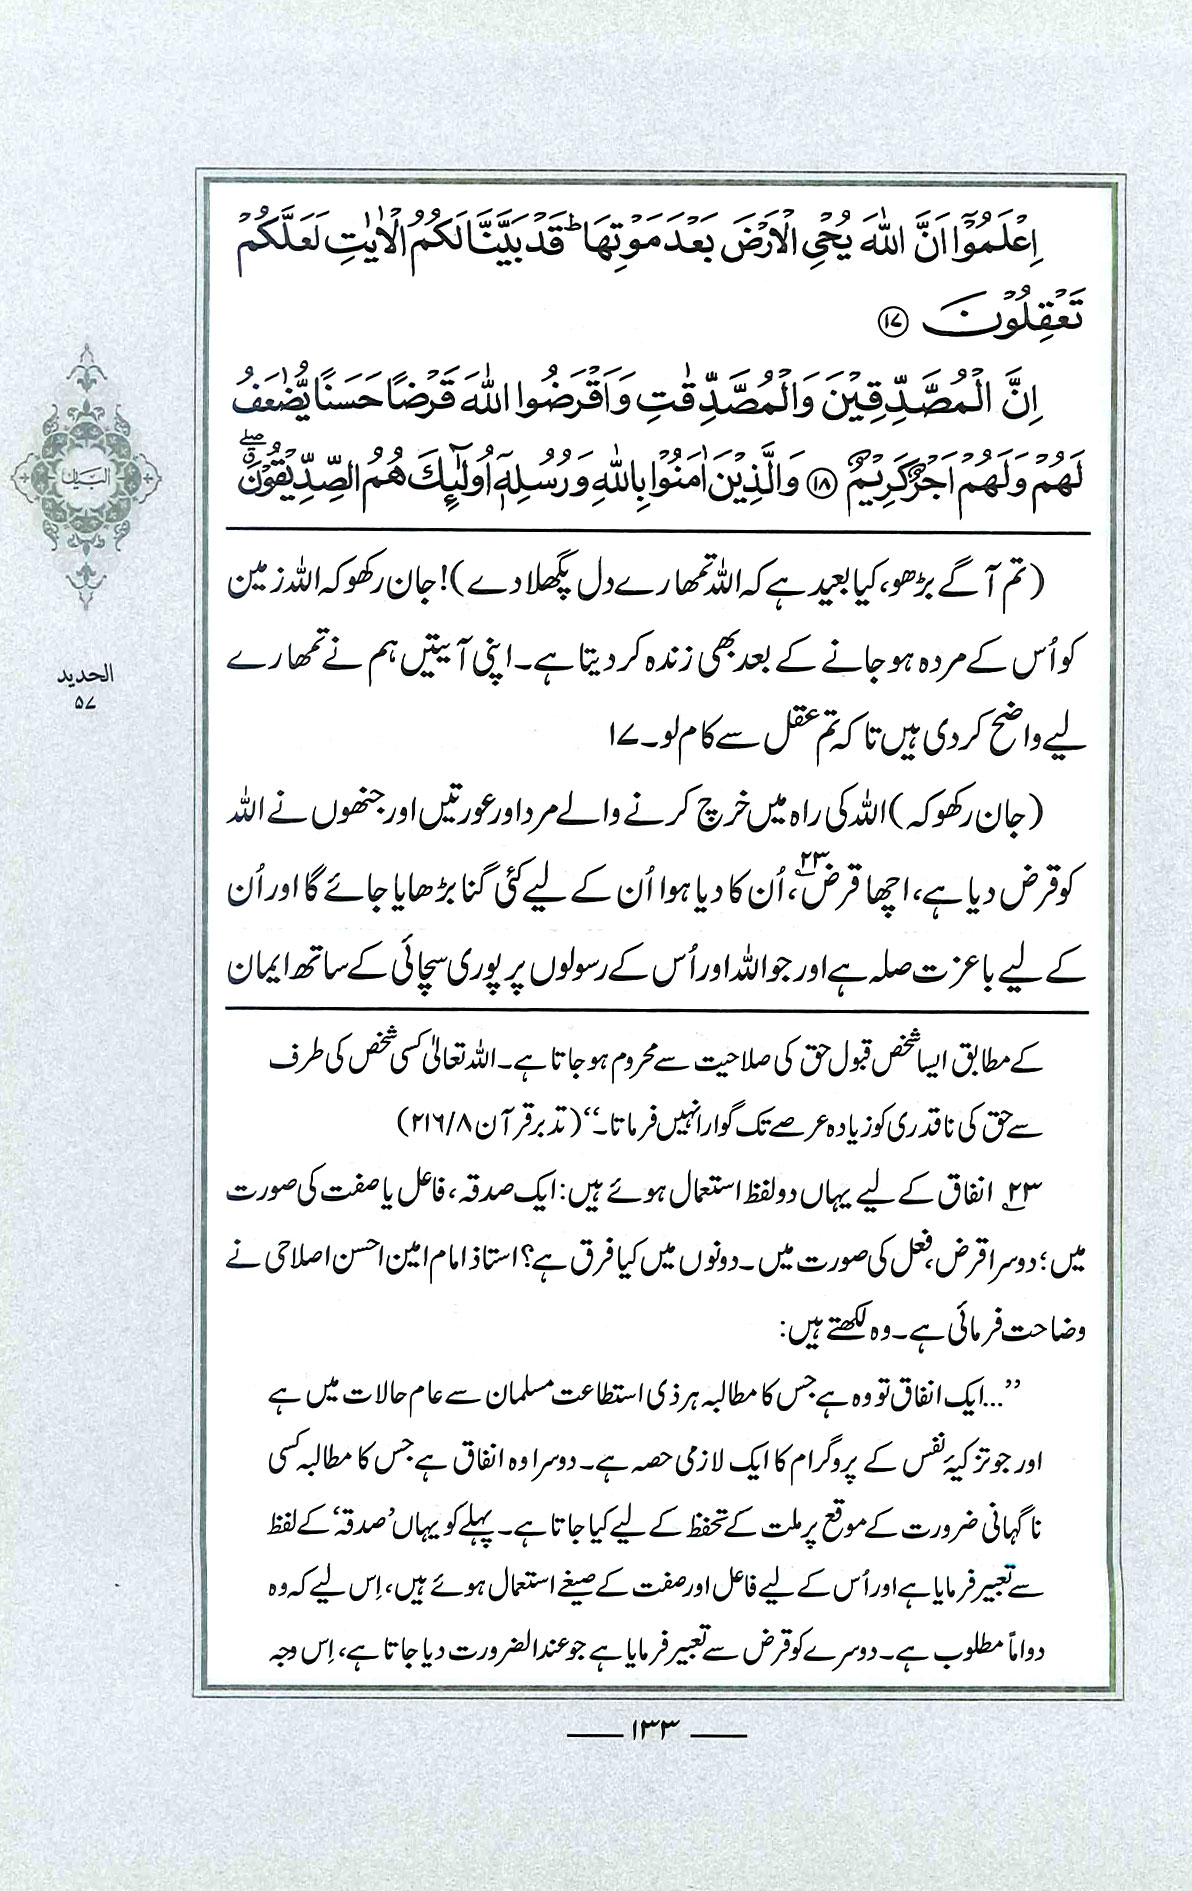 اِعْلَمُوْٓا اَنَّ اللّٰهَ يُحْيِ الْاَرْضَ بَعْدَ مَوْتِهَا ؕ قَدْ بَيَّنَّا لَكُمُ الْاٰيٰتِ لَعَلَّكُمْ
تَعْقِلُوْنَ ﴿۱۷﴾
اِنَّ الْمُصَّدِّقِيْنَ وَالْمُصَّدِّقٰتِ وَاَقْرَضُوا اللّٰهَ قَرْضًا حَسَنًا يُّضٰعَفُ
لَهُمْ وَلَهُمْ اَجْرٌ كَرِيْمٌ ﴿۱۸﴾ وَالَّذِيْنَ اٰمَنُوْا بِاللّٰهِ وَرُسُلِهٖٓ اُولٰٓئِكَ هُمُ الصِّدِّيْقُوْنَ ۖق
(تم آگے بڑھو، کیا بعید ہے کہ اللہ تمھارے دل پگھلا دے)! جان رکھو کہ اللہ زمین
کو اُس کے مردہ ہو جانے کے بعد بھی زندہ کر دیتا ہے۔ اپنی آیتیں ہم نے تمھارے
لیے واضح کر دی ہیں تاکہ تم عقل سے کام لو۔ ۱۷
(جان رکھو کہ) اللہ کی راہ میں خرچ کرنے والے مرد اور عورتیں اور جنھوں نے اللہ
کو قرض دیا ہے، اچھا قرض۲۳، اُن کا دیا ہوا اُن کے لیے کئی گنا بڑھایا جائے گا اور اُن
کے لیے باعزت صلہ ہے اور جو اللہ اور اُس کے رسولوں پر پوری سچائی کے ساتھ ایمان
کے مطابق ایسا شخص قبول حق کی صلاحیت سے محروم ہو جاتا ہے۔ اللہ تعالیٰ کسی شخص کی طرف
سے حق کی ناقدری کو زیادہ عرصے تک گوارا نہیں فرماتا۔‘‘ (تدبر قرآن ۸/ ۲۱۶)
۲۳؂ انفاق کے لیے یہاں دو لفظ استعمال ہوئے ہیں: ایک صدقہ، فاعل یا صفت کی صورت
میں؛ دوسرا قرض، فعل کی صورت میں۔ دونوں میں کیا فرق ہے؟ استاذ امام امین احسن اصلاحی نے
وضاحت فرمائی ہے۔ وہ لکھتے ہیں:
’’...ایک انفاق تو وہ ہے جس کا مطالبہ ہر ذی استطاعت مسلمان سے عام حالات میں ہے
اور جو تزکیۂ نفس کے پروگرام کا ایک لازمی حصہ ہے۔ دوسرا وہ انفاق ہے جس کا مطالبہ کسی
ناگہانی ضرورت کے موقع پر ملت کے تحفظ کے لیے کیا جاتا ہے۔ پہلے کو یہاں ’صدقہ‘ کے لفظ
سے تعبیر فرمایا ہے اور اُس کے لیے فاعل اور صفت کے صیغے استعمال ہوئے ہیں، اِس لیے کہ وہ
دواماً مطلوب ہے۔ دوسرے کو قرض سے تعبیر فرمایا ہے جو عند الضرورت دیا جاتا ہے، اِس وجہ
۱۳۳
البیان
الحدید
۵۷